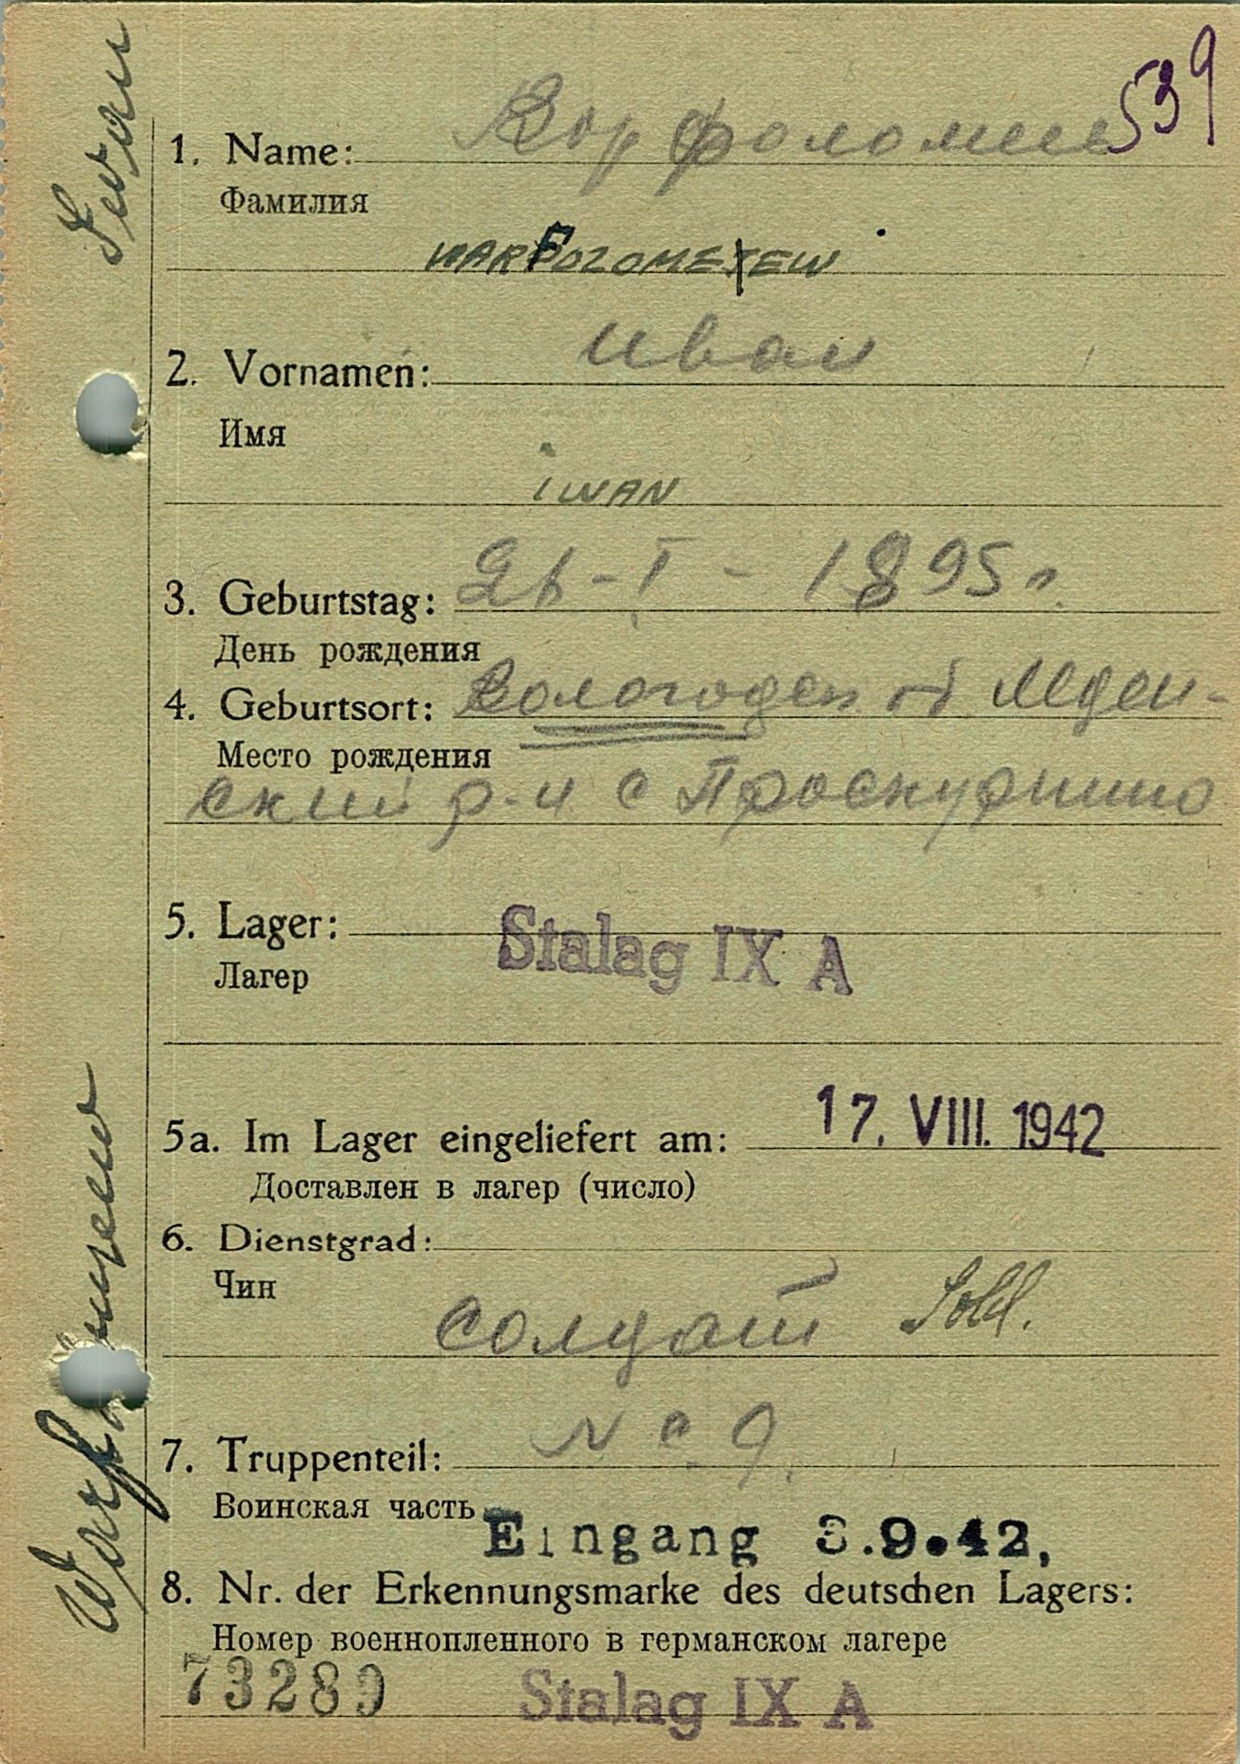 539
1. Name: Ворфоломеев
Фамилия
WARFOLOMEJEW
2. Vornamen: Иван
Имя
iWAN
3. Geburtstag: 26-I-1895 г.
День рождения
4. Geburtsort: Вологодск
Место рождения
ский р-н с Проскурнино
5. Lager: Stalag IX A
Лагер
5a. Im Lager eingeliefert am: 17. VIII. 1942
Доставлен в лагер (число)
6. Dienstgrad:
Чин
солдат Sold.
7. Truppenteil:
Воинская часть
Eingang 3.9.42,
8. Nr. der Erkennungsmarke des deutschen Lagers:
Номер военнопленного в германском лагере
73289 Stalag IX A
Iwan